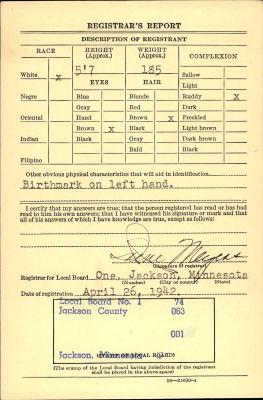 REGISTRAR'S REPORT
DESCRIPTION OF REGISTRANT
RACE HEIGHT (Approx.) WEIGHT (Approx.) COMPLEXION
5'7 185
White x EYES HAIR Sallow
Light
Negro Blue Blonde Ruddy X
Gray Red Dark
Oriental Hazel Brown X Freckled
Brown x Black Light brown
Indian Black Gray Dark brown
Bald Black
Filipino
Other obvious physical characteristics that will aid in identification
Birthmark on left hand.
I certify that my answers are true; that the person registered has read or has had
read to him his own answers; that I have witnessed his signature or mark and that
all of his answers of which I have knowledge are true, except as follows:
(Signature of registrar)
Registrar for Local Board One, Jackson, Minnesota
(Number) (City or county) (State)
Date of registration April 26, 1942
Local Board No. 1 74
Jackson County 063
001
Jackson, Minnesota
(STAMP OF LOCAL BOARD)
(The stamp of the Local Board having jurisdiction of the registrant
shall be placed in the above space)
16—21630-1